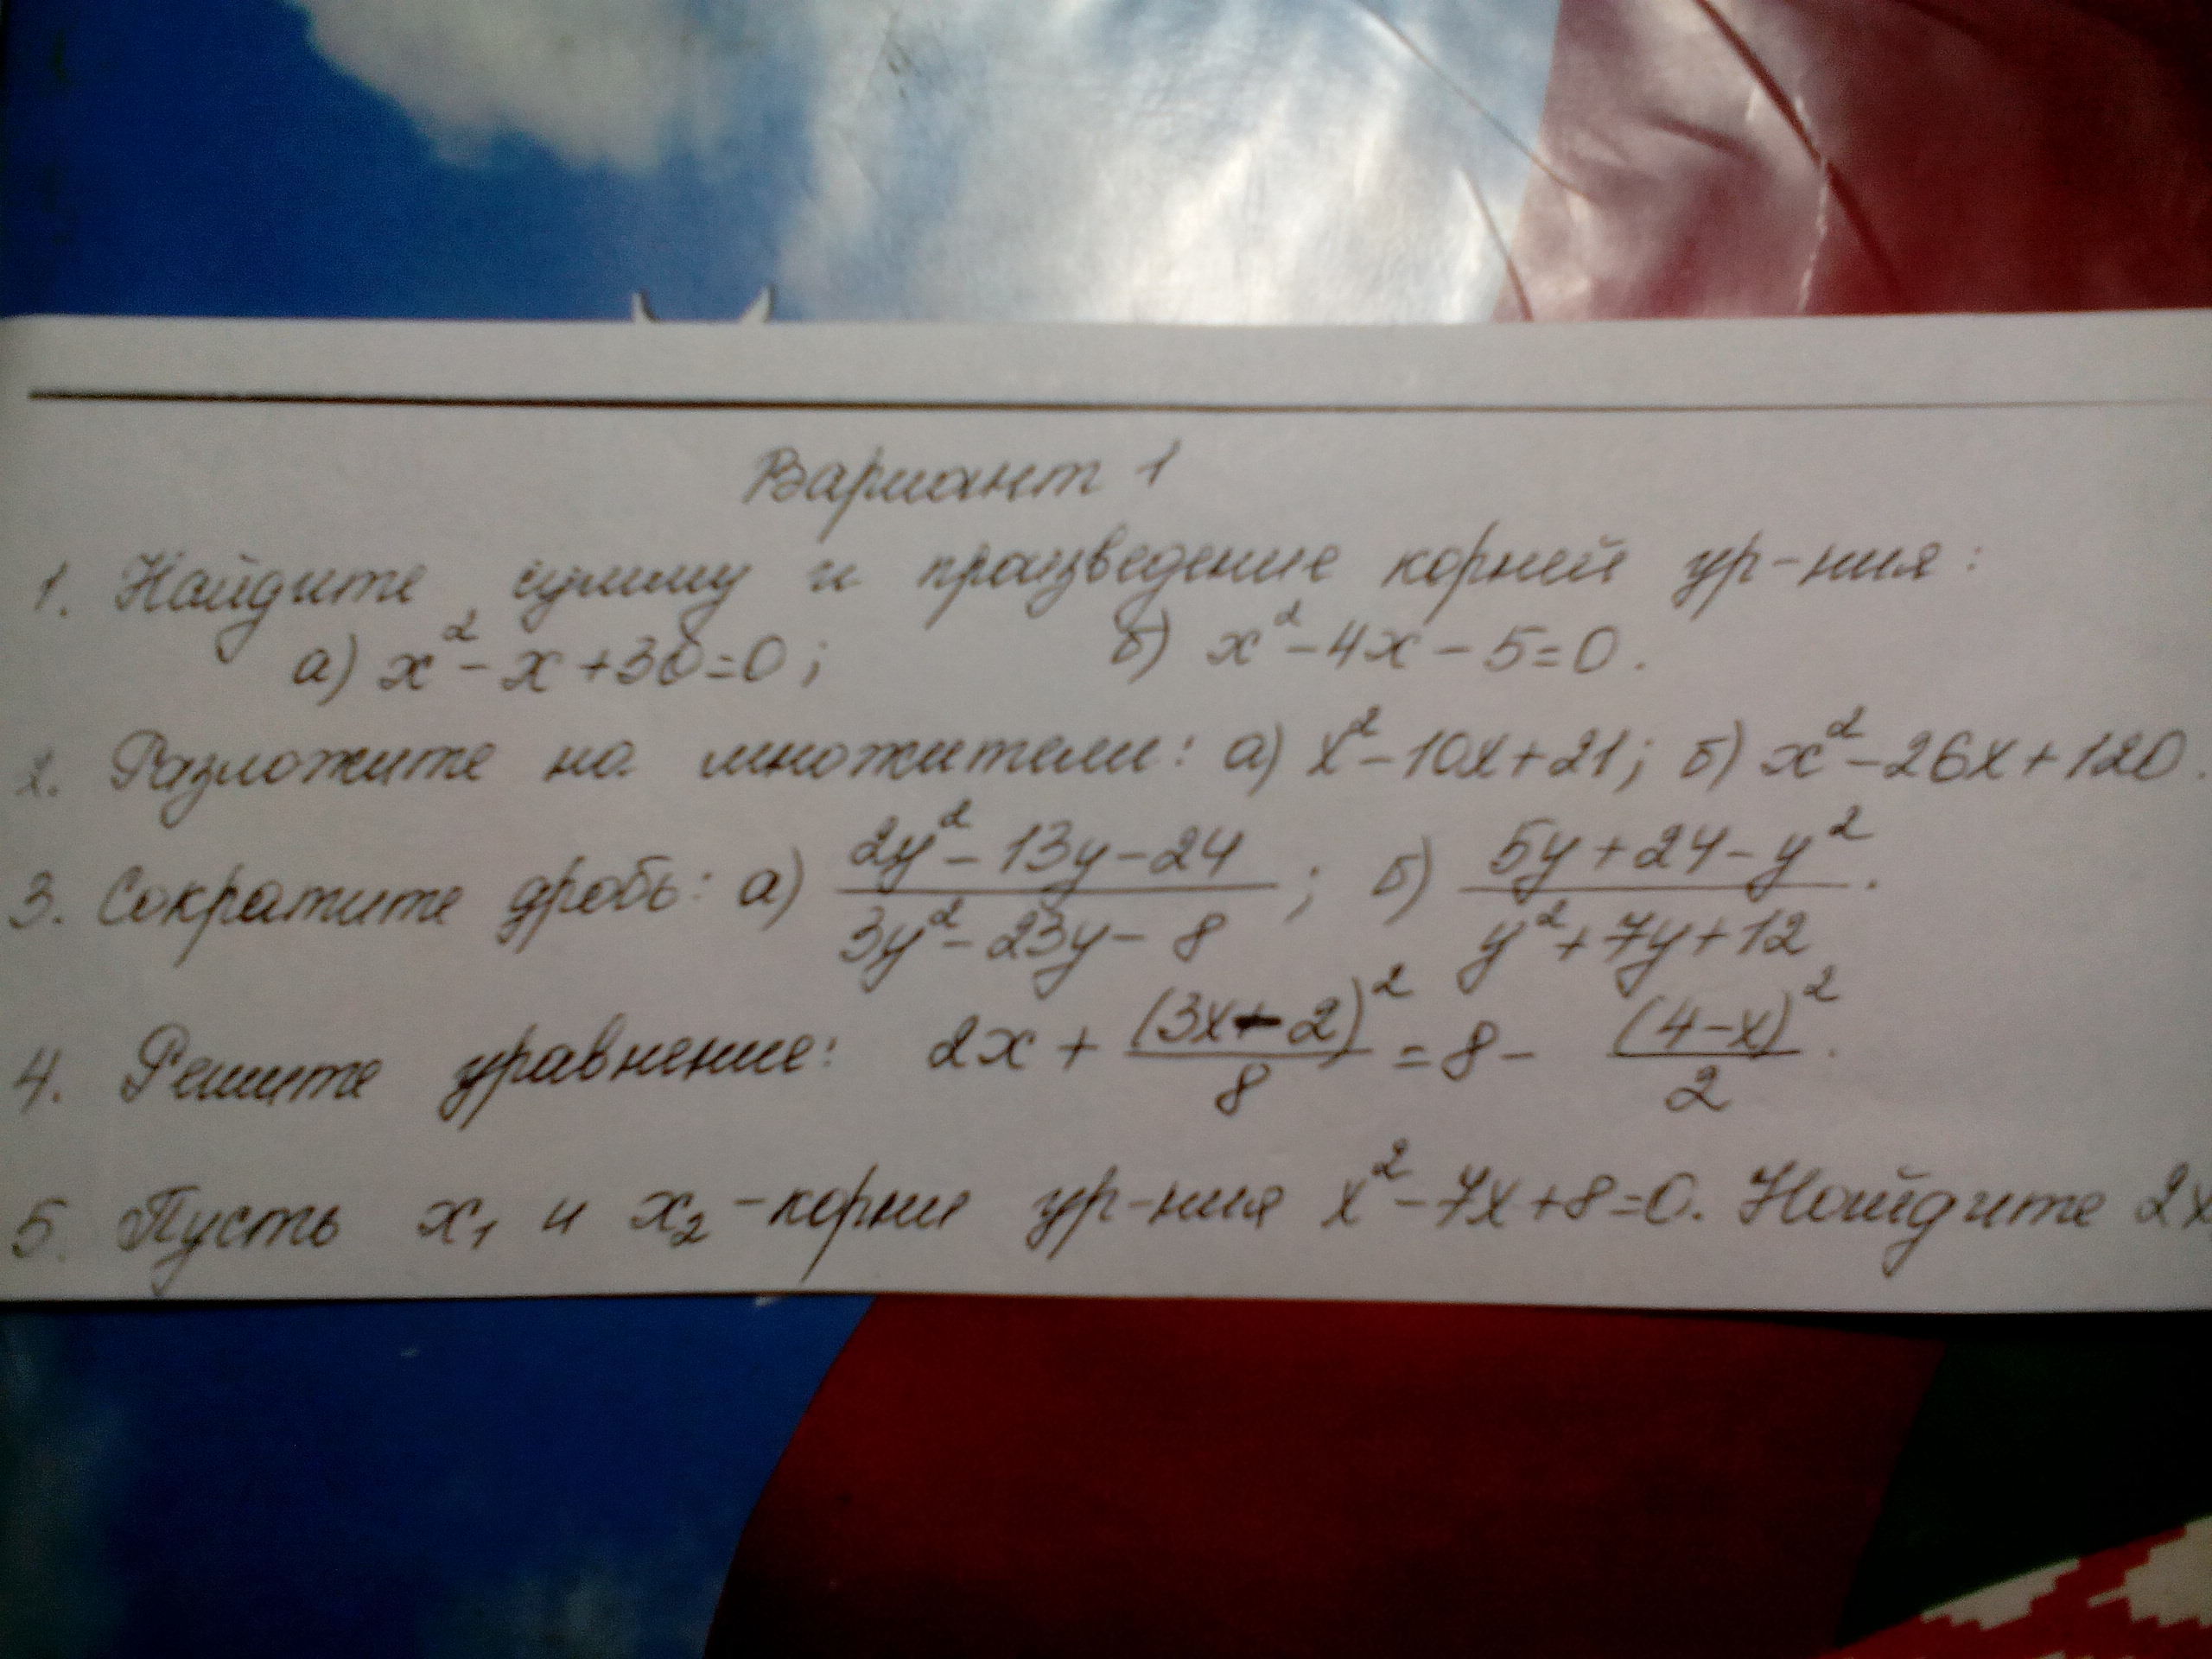 Вариант 1
1. Найдите сумму и произведение корней ур-ния:
а) x² - x + 30 = 0; б) x² - 4x - 5 = 0.
2. Разложите на множители: а) x² - 10x + 21; б) x² - 26x + 120.
3. Сократите дробь: а) (2y² - 13y - 24)/(3y² - 23y - 8); б) (5y + 24 - y²)/(y² + 7y + 12).
4. Решите уравнение: 2x + (3x - 2)²/8 = 8 - (4 - x)²/2.
5. Пусть x₁ и x₂ - корни ур-ния x² - 7x + 8 = 0. Найдите 2x